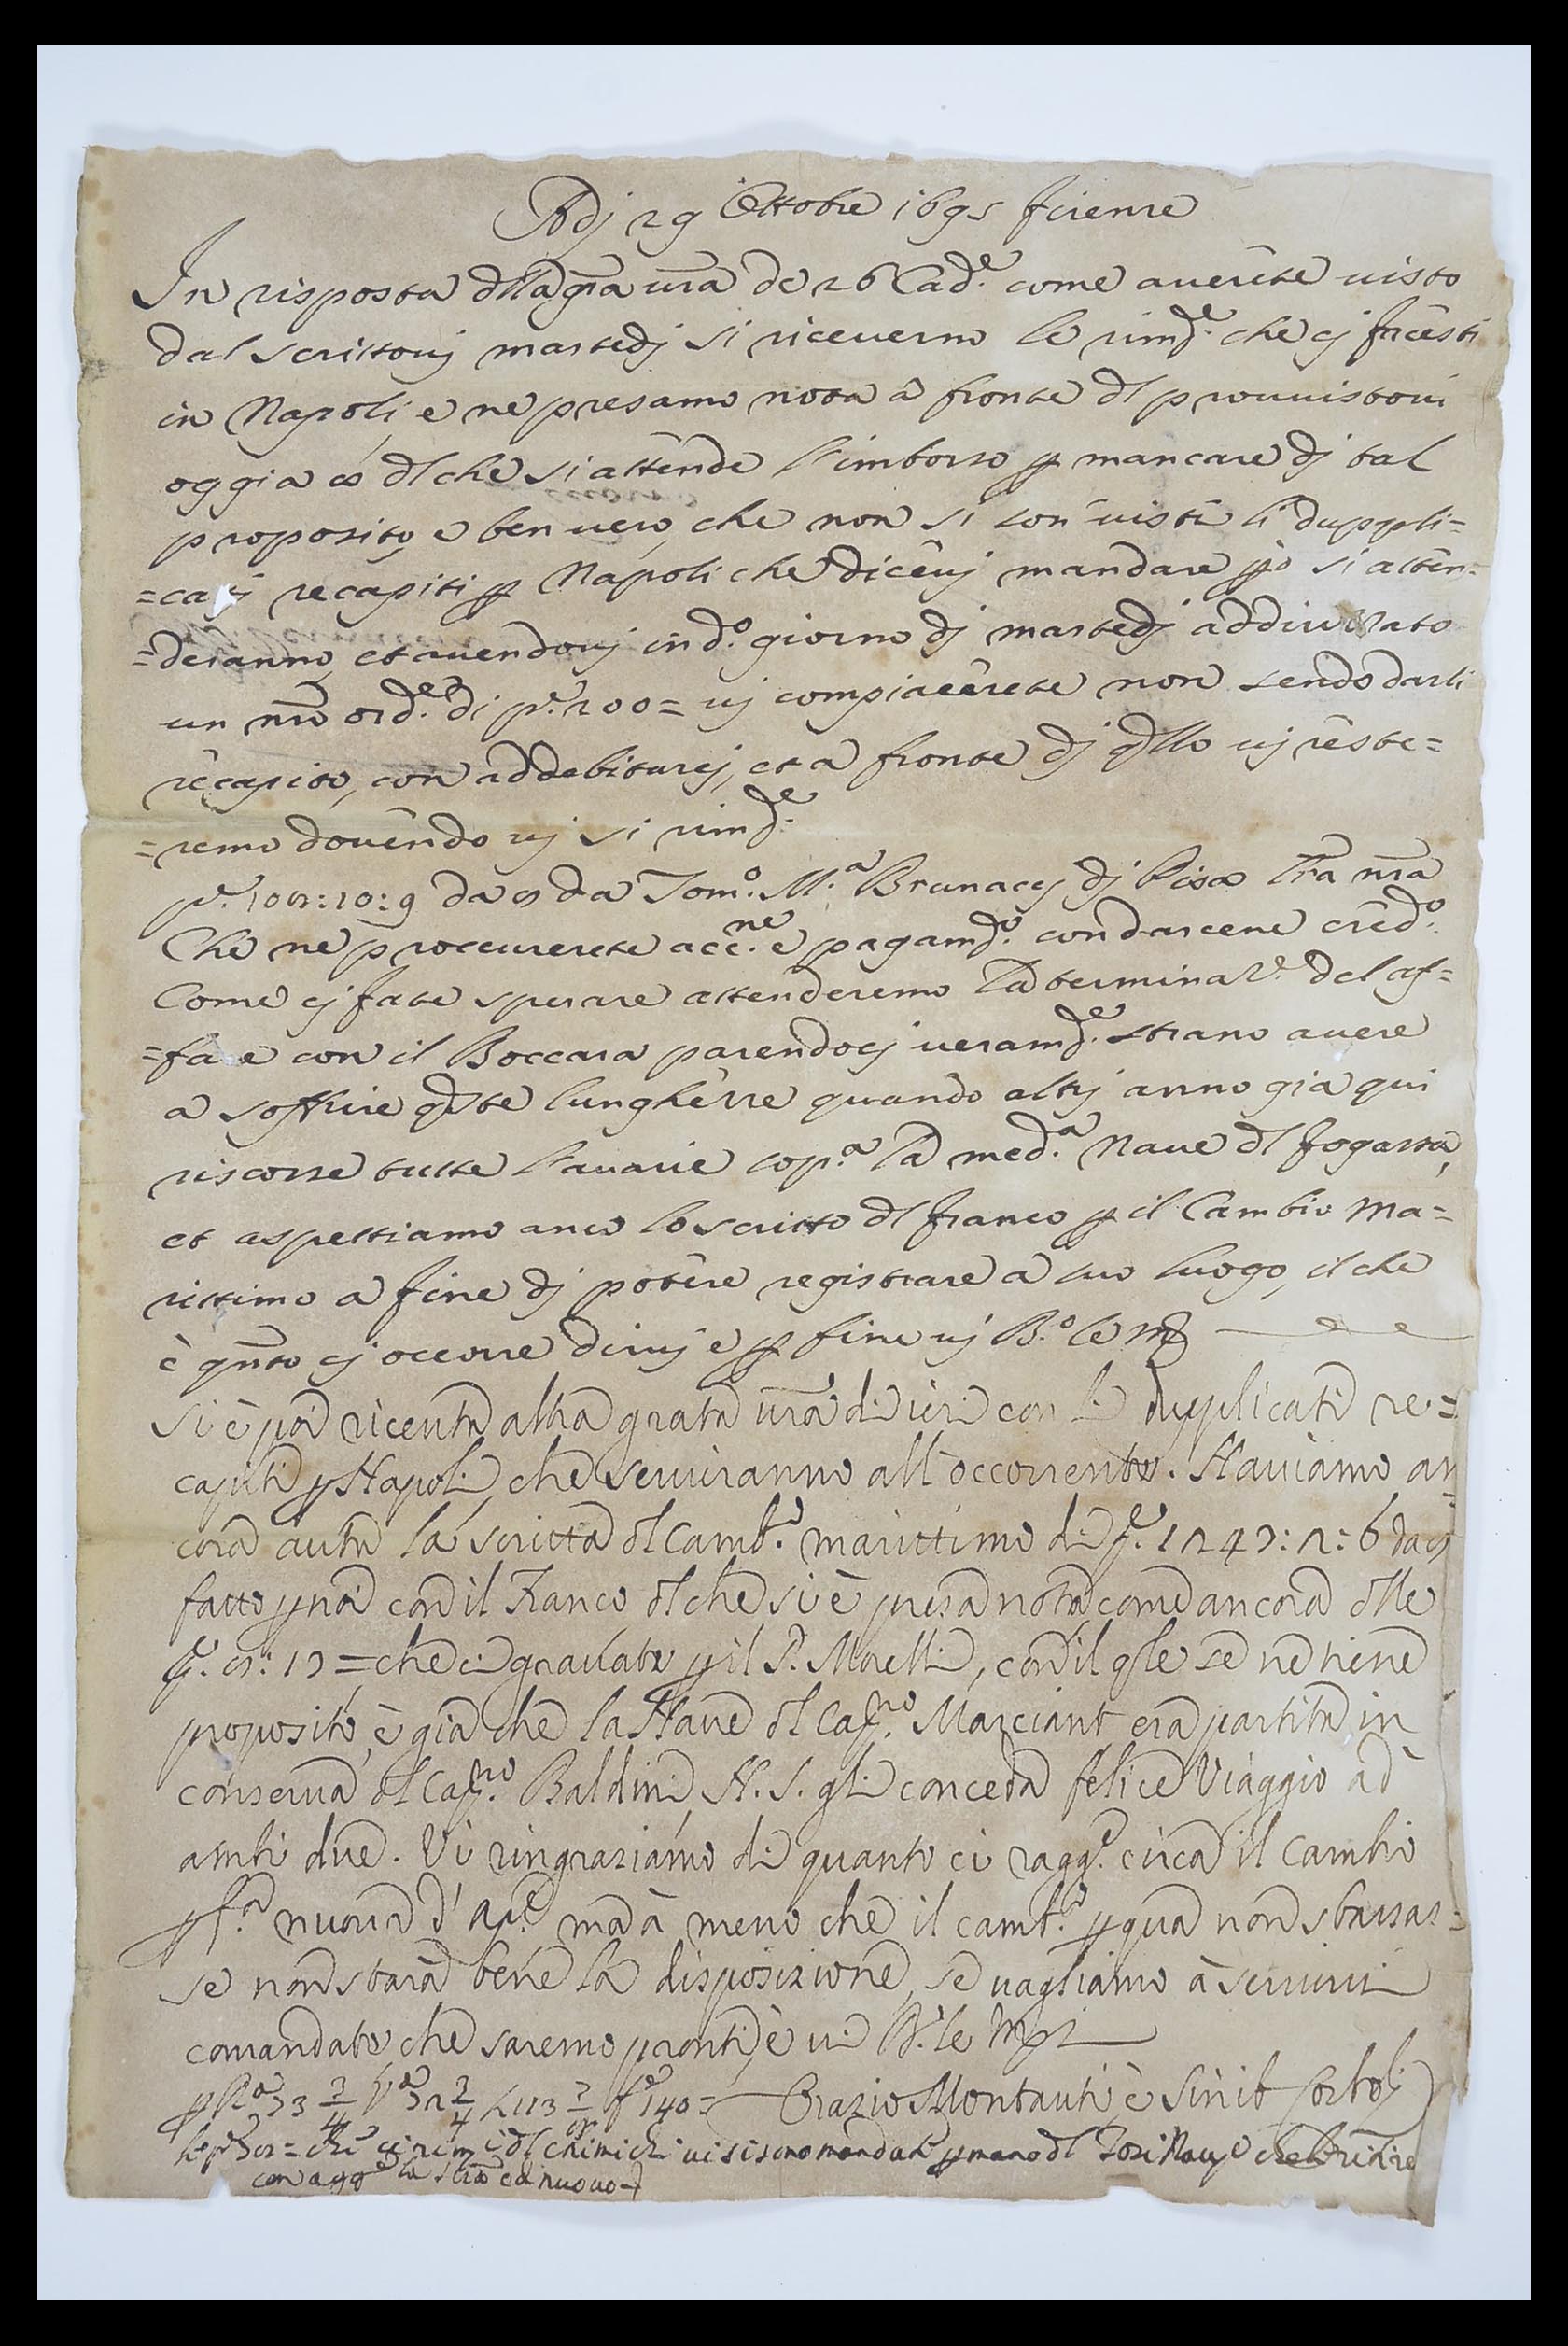 Adj 29 Ottobre 1695 Firenze
In risposta dlla gra vra de 26 Cad.e come averete visto
dal scrittovj martedj si riceverno le rimd.e che cj facesti
in Napoli e ne presamo nota a fronte dl provvistovi
oggia dl che si attende l'imborso p mancare dj tal
proposito, e ben vero, che non si son viste li duppli=
=catj recapiti p Napoli che dicevj mandare pò si atten=
=deranno, et avendovj in d.o giorno dj martedj addirizzato
un nro ord.e di p.e 200= vj compiacerete non sendo darli
recapito, con addebitarcj, et a fronte dj qllo vj reste=
=remo dovendo vj si rimd.e
da Tom.o M.a Brunaccj dj Pisa lra nra
Che ne proccurerete acc.ne e pagamd.o con darcene cred.o
Come cj fate sperare attenderemo la terminaz.e del af=
=fare con il Boccara parendocj veramd.e strano avere
a soffrire qste lunghezze quando altrj anno gia qui
riscosse tutte l'avarie sop.a la med.a Nave dl fogassa,
et aspettiamo anco lo scritto dl franco p il Cambio Ma=
rittimo a fine dj potere registrare a suo luogo, il che
è qnto cj occorre dirvj e p fine vj B.o le M
Si è poi ricevuta altra grata vra di ieri con li duplicati re=
capiti p Napoli, che serviranno all'occorrente. Haviamo an
cora avuta la scritta dl Camb.o marittimo di p.e 1247:2:6 da
fatto p noi con il Franco dl che si è presa nota come ancora dlle
che ci gravate p il S. Morelli, con il qle se ne tiene
proposito, è già che la Nave dl Cap.no Marciant era partita in
conserva dl Cap.no Baldini, N. S. gli conceda felice Viaggio ad
ambi due. Vi ringraziamo di quanto ci ragg.e circa il Cambio
p f.a nuova d'Ap.e ma à meno che il camb.o p qua non sbassas=
se non starà bene la disposizione, se vagliamo à servirvi
comandate, che saremo pronti, è vi B. le M
Orazio Montauti, è Sinib
con agg.e